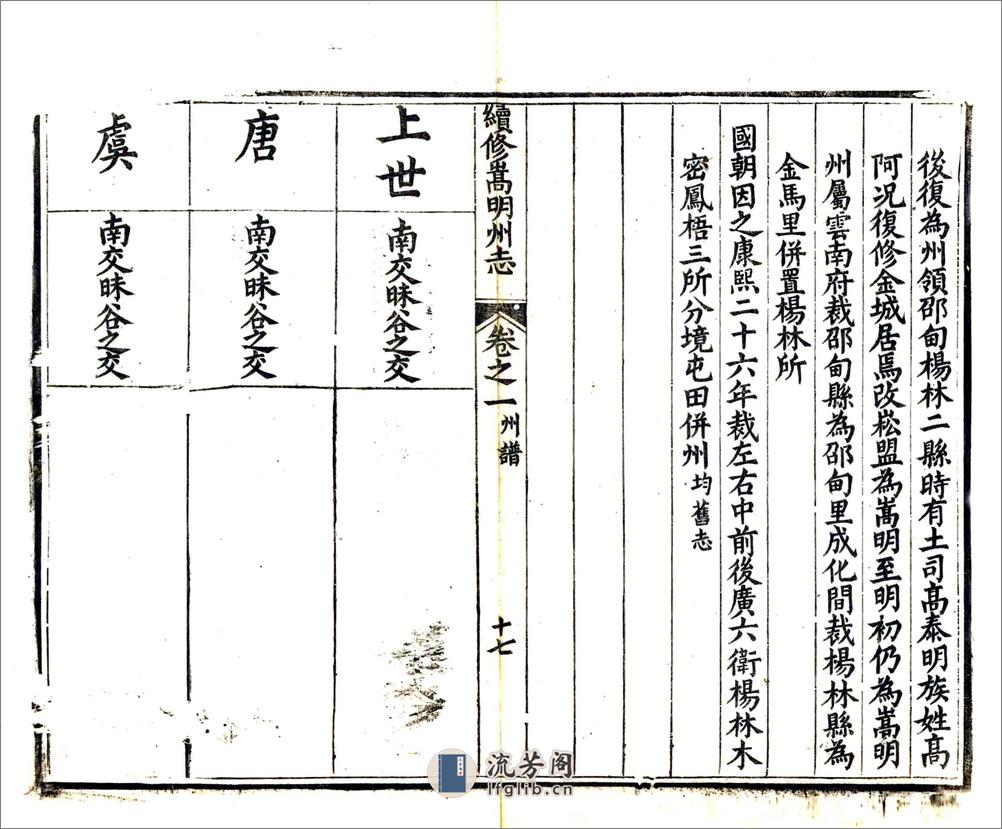 後復為州領邵甸楊林二縣時有土司高泰明族姓高
阿况復修金城居焉改崧盟為嵩明至明初仍為嵩明
州屬雲南府裁邵甸縣為邵甸里成化間裁楊林縣為
金馬里併置楊林所
國朝因之康熙二十六年裁左右中前後廣六衛楊林木
密鳳梧三所分境屯田併州均舊志
續修嵩明州志 卷之一 州譜 十七
上世
南交昧谷之交
唐
南交昧谷之交
虞
南交昧谷之交
流芳阁
lfglib.cn